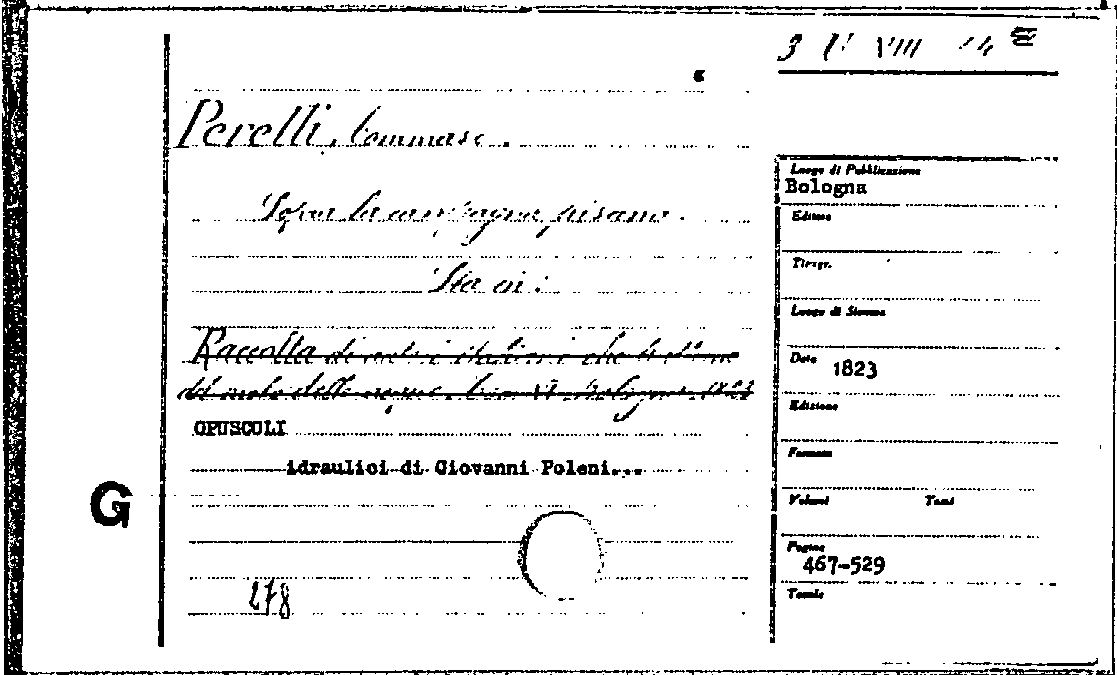 3 VIII
Perelli, Tommaso.
Luogo di Pubblicazione
Bologna
Sopra la campagna pisana.
Editore
Tipogr.
Sta in:
Luogo di Stampa
Raccolta di autori italiani che trattano
Date 1823
del moto delle acque. Bologna, 1823
Edizione
OPUSCOLI
Formato
idraulici di Giovanni Poleni...
Volumi Tomi
G
Pagine
467-529
278
Tavole